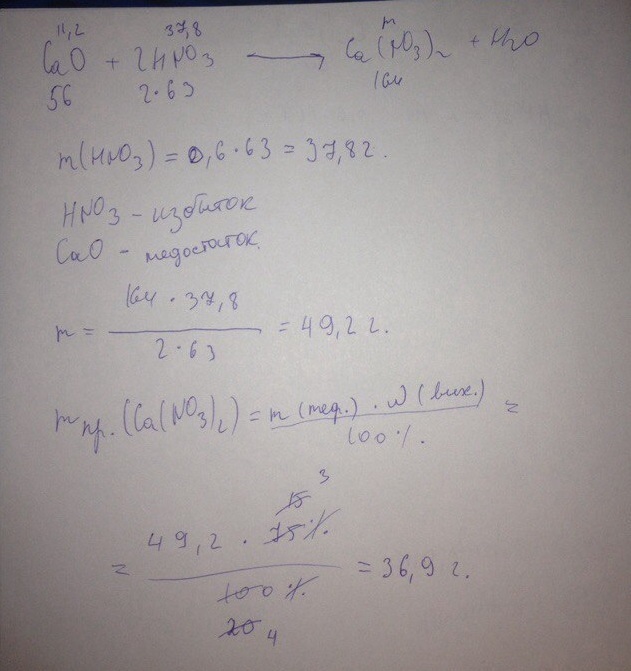 11,2 37,8 m
CaO + 2HNO3 ⟶ Ca(NO3)2 + H2O
56 2·63 164
m(HNO3) = 0,6·63 = 37,8 г.
HNO3 – избыток
CaO – недостаток.
164 · 37,8
m = ―――― = 49,2 г.
2·63
m пр. (Ca(NO3)2) = m (теор.) · W (вых.) =
100%.
15 3
49,2 · 75%.
= ―――― = 36,9 г.
100%.
20 4